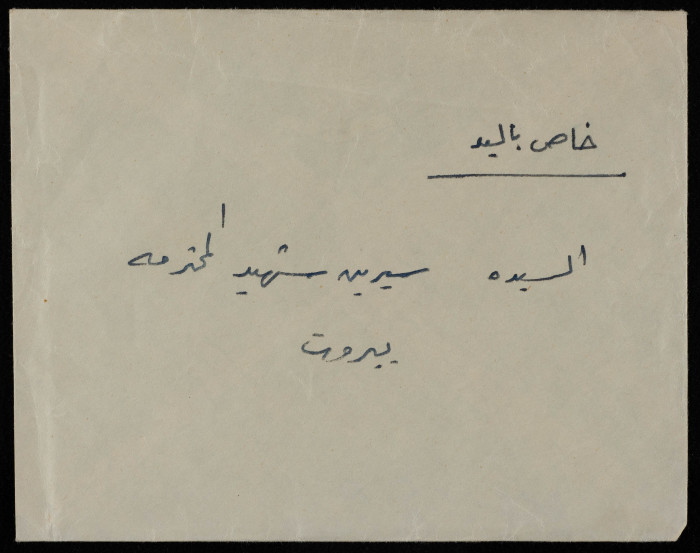 خاص باليد
السيده سيرين شهيد المحترمه
بيروت